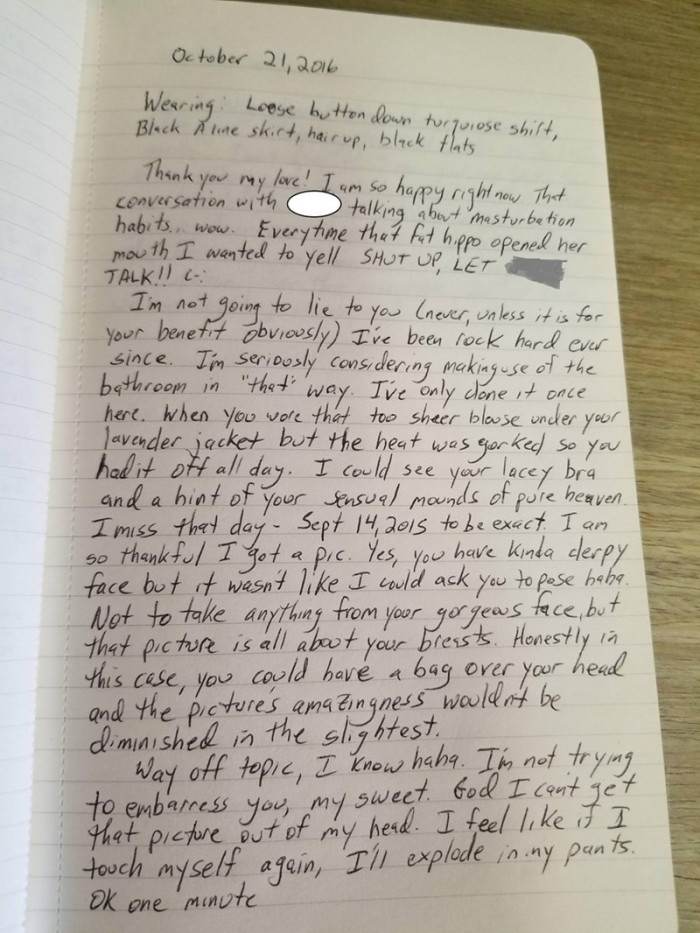 October 21, 2016
Wearing: Loose button down turquiose shirt,
Black A line skirt, hair up, black flats
Thank you my love! I am so happy right now That
conversation with talking about masturbation
habits... wow. Everytime that fat hippo opened her
mouth I wanted to yell SHUT UP, LET
TALK!! (-:
I'm not going to lie to you (never, unless it is for
your benefit obviously) I've been rock hard ever
since. I'm seriously considering making use of the
bathroom in "that" way. I've only done it once
here. When you wore that too sheer blouse under your
lavender jacket but the heat was gorked so you
had it off all day. I could see your lacey bra
and a hint of your sensual mounds of pure heaven.
I miss that day - Sept 14, 2015 to be exact. I am
so thankful I got a pic. Yes, you have kinda derpy
face but it wasn't like I could ask you to pose haha.
Not to take anything from your gorgeous face, but
that picture is all about your breasts. Honestly in
this case, you could have a bag over your head
and the picture's amazingness wouldn't be
diminished in the slightest.
Way off topic, I know haha. I'm not trying
to embarress you, my sweet. God I can't get
that picture out of my head. I feel like if I
touch myself again, I'll explode in my pants.
OK one minute